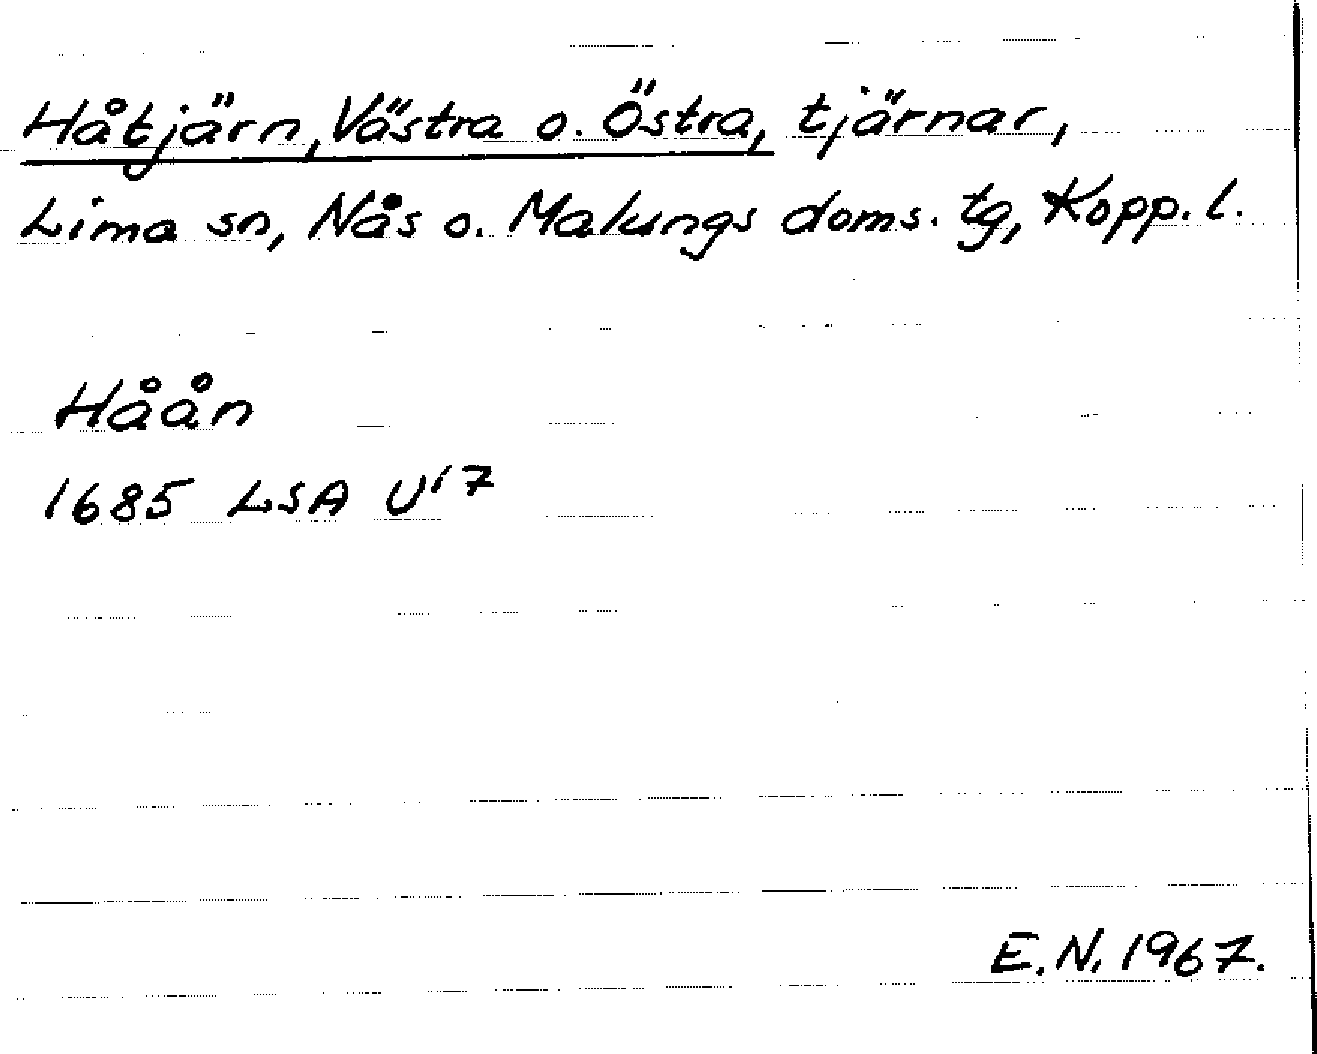 Håtjärn, Västra o. Östra, tjärnar,
Lima sn, Nås o. Malungs doms. tg, Kopp. l.
Håån
1685 LSA U17
E.N. 1967.